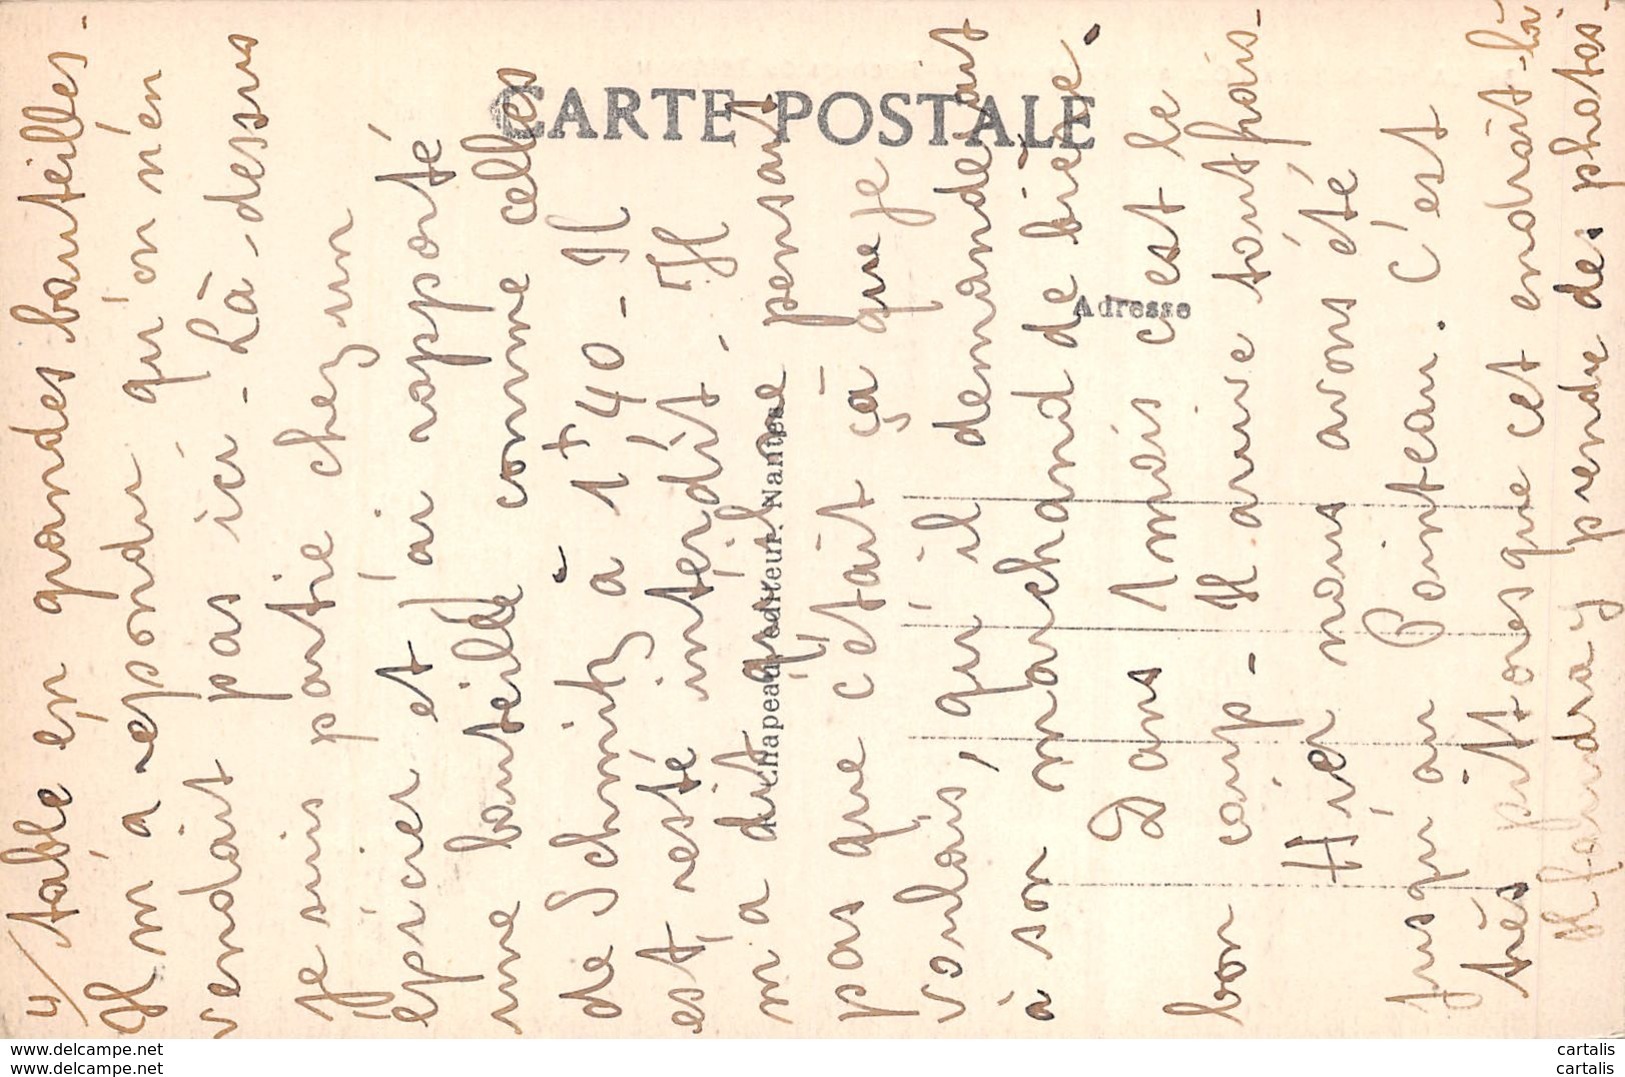 4/ table en grandes bouteilles -
Il m'a répondu qu'on n'en
vendait pas ici - Là-dessus
Je suis partie chez un
épicier et j'ai rapporté
une bouteille comme celles
de Schmitz à 1f40 - Il
est resté interdit - "Il
m'a dit qu'il ne pensait
pas que c'était ça que je
voulais, qu'il demanderait
à son marchand de bière.
Dans 1 mois c'est le
bon coup - Il arrive toutfois -
Hier nous avons été
jusqu'au Pointeau. C'est
très pittoresque cet endroit-là
Il faudra y prendre des photos -
CARTE POSTALE
Adresse
Chapeau, éditeur. Nantes
www.delcampe.net
www.delcampe.net
cartalis
cartalis